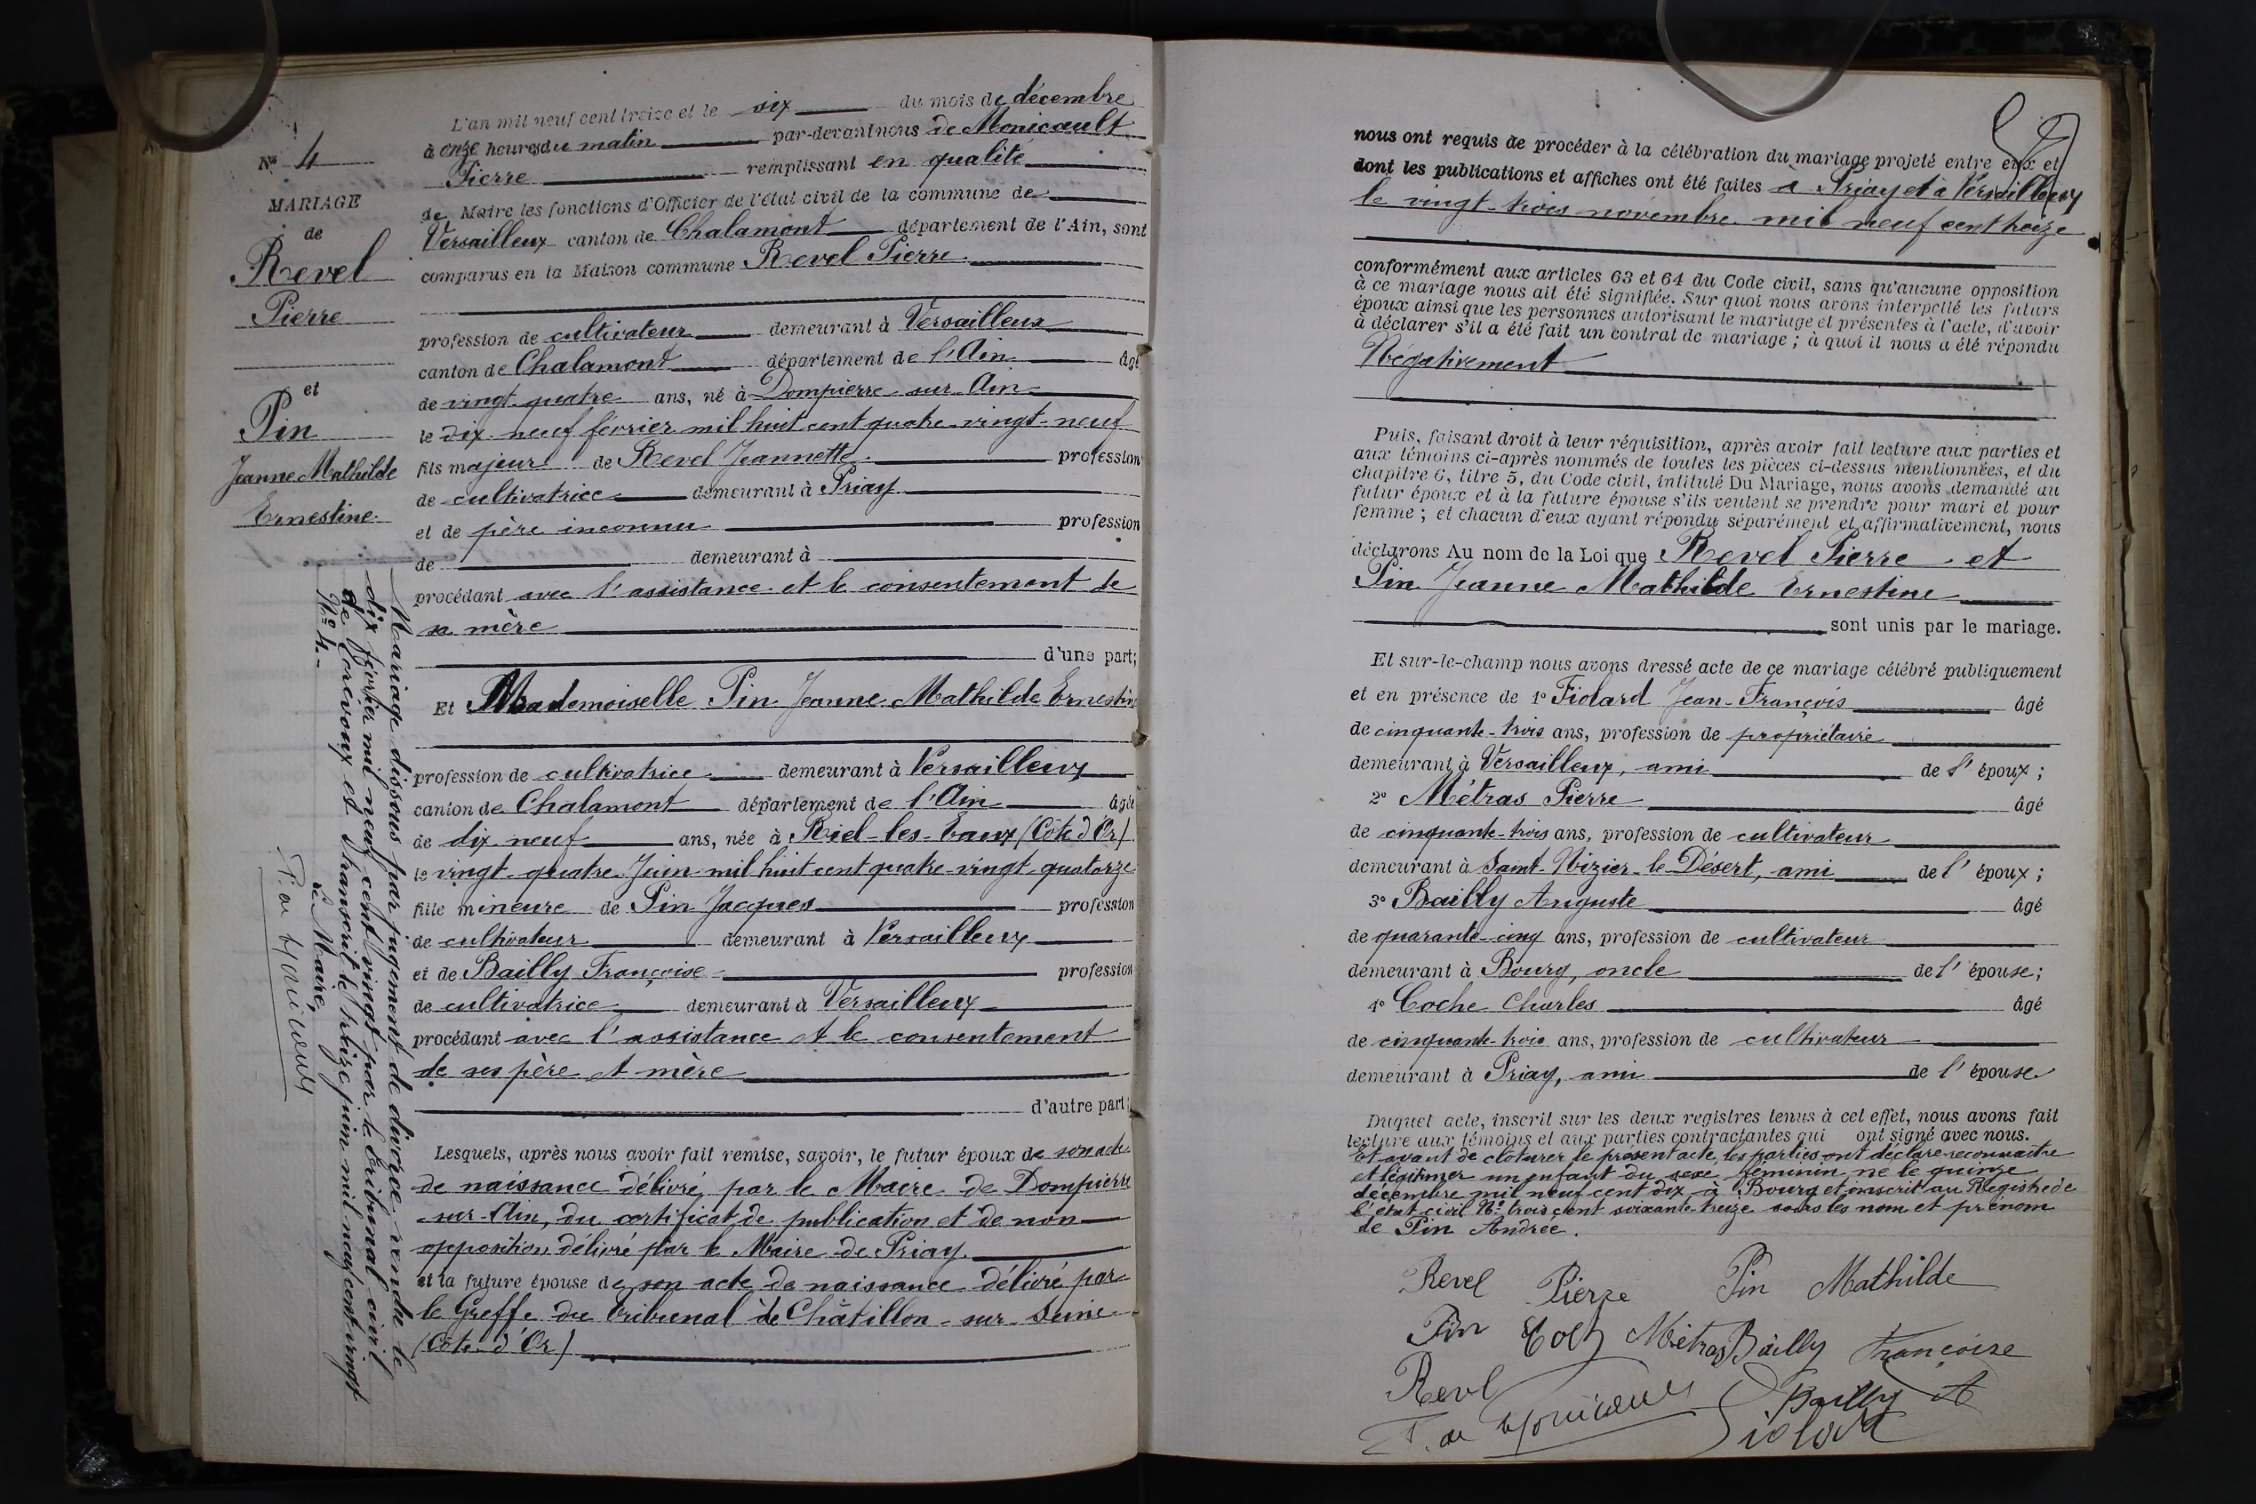 N° 4
MARIAGE
de
Revel
Pierre
et
Pin
Jeanne Mathilde
Ernestine
Mariage dissous par jugement de divorce rendu le
dix février mil neuf cent vingt par le Tribunal civil
de Trévoux et transcrit le treize juin mil neuf cent vingt
N° 4.-
Le Maire,
P. de Monicault
L'an mil neuf cent treize et le six du mois de décembre
à onze heures du matin par-devant nous de Monicault
Pierre remplissant en qualité
de Maire les fonctions d'Officier de l'état civil de la commune de
Versailleux canton de Chalamont département de l'Ain, sont
comparus en la Maison commune Revel Pierre
profession de cultivateur demeurant à Versailleux
canton de Chalamont département de l'Ain âgé
de vingt-quatre ans, né à Dompierre sur Ain
le dix-neuf février mil huit cent quatre-vingt-neuf
fils majeur de Revel Jeannette profession
de cultivatrice demeurant à Priay
et de père inconnu profession
de demeurant à
procédant avec l'assistance et le consentement de
sa mère
d'une part;
Et Mademoiselle Pin Jeanne Mathilde Ernestine
profession de cultivatrice demeurant à Versailleux
canton de Chalamont département de l'Ain âgée
de dix-neuf ans, née à Riel-les-Eaux (Côte d'Or)
le vingt-quatre Juin mil huit cent quatre-vingt-quatorze
fille mineure de Pin Jacques profession
de cultivateur demeurant à Versailleux
et de Bailly Françoise profession
de cultivatrice demeurant à Versailleux
procédant avec l'assistance et le consentement
de ses père et mère
d'autre part;
Lesquels, après nous avoir fait remise, savoir, le futur époux de son acte
de naissance délivré par le Maire de Dompierre
sur-Ain, du certificat de publication et de non
opposition délivré par le Maire de Priay.
et la future épouse de son acte de naissance délivré par
le Greffe du Tribunal de Châtillon-sur-Seine
(Côte-d'Or)
nous ont requis de procéder à la célébration du mariage projeté entre eux et
dont les publications et affiches ont été faites à Priay et à Versailleux
le vingt-trois novembre mil neuf cent treize
conformément aux articles 63 et 64 du Code civil, sans qu'aucune opposition
à ce mariage nous ait été signifiée. Sur quoi nous avons interpellé les futurs
époux ainsi que les personnes autorisant le mariage et présentes à l'acte, d'avoir
à déclarer s'il a été fait un contrat de mariage ; à quoi il nous a été répondu
Négativement
Puis, faisant droit à leur réquisition, après avoir fait lecture aux parties et
aux témoins ci-après nommés de toutes les pièces ci-dessus mentionnées, et du
chapitre 6, titre 5, du Code civil, intitulé Du Mariage, nous avons demandé au
futur époux et à la future épouse s'ils veulent se prendre pour mari et pour
femme ; et chacun d'eux ayant répondu séparément et affirmativement, nous
déclarons Au nom de la Loi que Revel Pierre et
Pin Jeanne Mathilde Ernestine
sont unis par le mariage.
Et sur-le-champ nous avons dressé acte de ce mariage célébré publiquement
et en présence de 1° Fiolard Jean-François âgé
de cinquante-trois ans, profession de propriétaire
demeurant à Versailleux, ami de l'époux ;
2° Métras Pierre âgé
de cinquante-trois ans, profession de cultivateur
demeurant à Saint-Nizier-le-Désert, ami de l'époux ;
3° Bailly Auguste âgé
de quarante-cinq ans, profession de cultivateur
demeurant à Bourg, oncle de l'épouse ;
4° Coche Charles âgé
de cinquante-trois ans, profession de cultivateur
demeurant à Priay, ami de l'épouse
Duquel acte, inscrit sur les deux registres tenus à cet effet, nous avons fait
lecture aux témoins et aux parties contractantes qui ont signé avec nous.
Et avant de cloturer le présent acte, les parties ont déclaré reconnaitre
et légitimer un enfant du sexe féminin né le quinze
décembre mil neuf cent dix à Bourg et inscrit au Registre de
l'état civil N° trois cent soixante treize sous les nom et prénom
de Pin Andrée.
Revel Pierre Pin Mathilde
Pin Métras Bailly Françoise
Revel Bailly A
P. de Monicault Fiolard